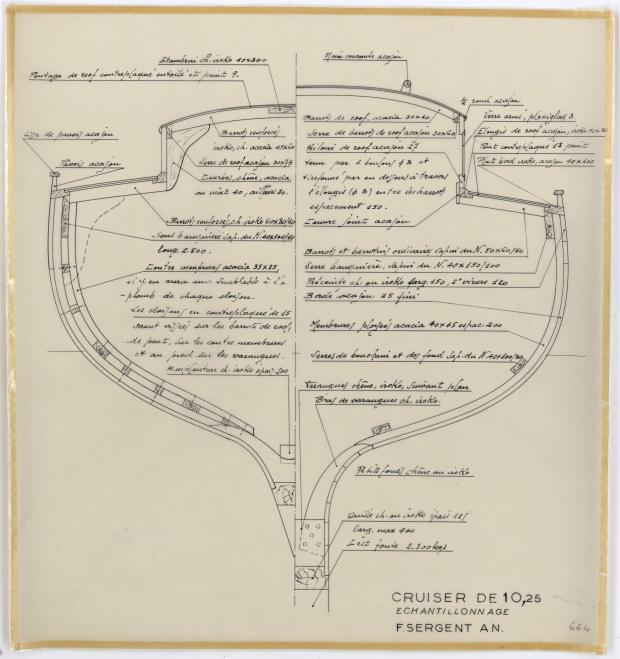 Etambrai ch. iroko 40x300
Pontage de roof contreplaqué entoilé et peint 9.
Lisse de pavois acajou
Pavois acajou
Barrots renforcés
iroko, ch. acacia 45x60
Serre de roof acajou 30x75
Courbes, chêne, acacia,
au mât 40, ailleurs 30.
Barrots renforcés, ch. iroko
Sous bauquière sap. du N.
long. 2.500.
Contre membrures acacia 35x25,
il y en aura une semblable à l'a
-plomb de chaque cloison.
Les cloisons en contreplaqué de 15
seront vissées sur les barrots de roof,
de pont, sur les contre membrures
et au pied sur les varangues.
Emplanture ch. iroko épais. 100
Main courante acajou
1/2 rond acajou
Verre armé, plexiglas 8
Elongis de roof acajou, iroko
Pont contreplaqué 12 peint
Plat bord iroko, acajou 40x100
Barrots de roof, acacia 30x40
Serre de barrots de roof acajou 30x60
Hiloire de roof acajou 27
tenu par 4 boulons φ 8 et
tirefonné par en dessous à travers
l'élongis (φ 8) entre les barrots
espacement 150.
Couvre joint acajou
Barrots et barrotins ordinaires sapin du N.
Serre bauquière, sapin du N. 40x150/100
Préceinte ch. ou iroko larg. 150, 2e virure 120
Bordé acajou 25 fini
Membrures ployées acacia 40x45 espac. 200
Serres de bouchain et des fond sap. du N.
Varangues chêne, iroko, suivant plan
Bras de varangues ch. iroko.
Petits fonds chêne ou iroko
Quille ch. ou iroko épais 125
larg. max 400
Lest fonte 2.300 kgs
CRUISER DE 10,25
ECHANTILLONNAGE
F. SERGENT A.N.
664